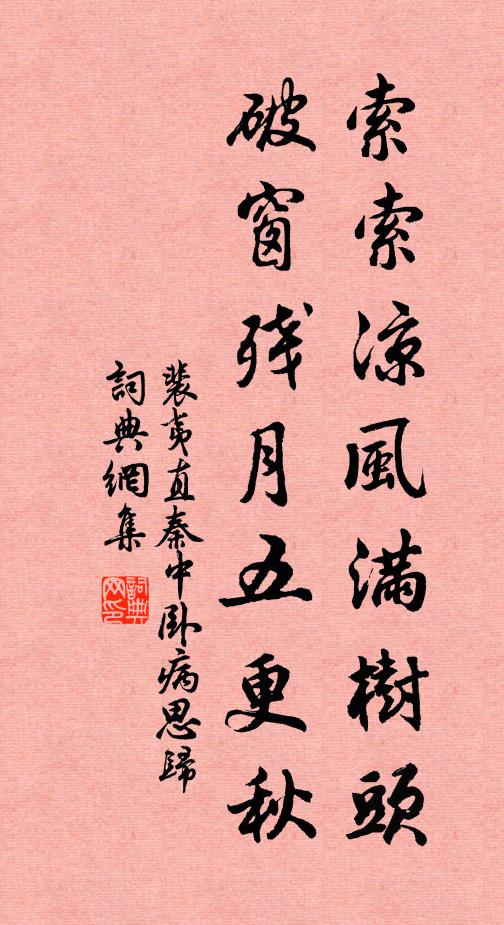 索索涼風滿樹頭
破窗殘月五更秋
裴夷直秦中卧病思歸
詞典網集
詞典
网印